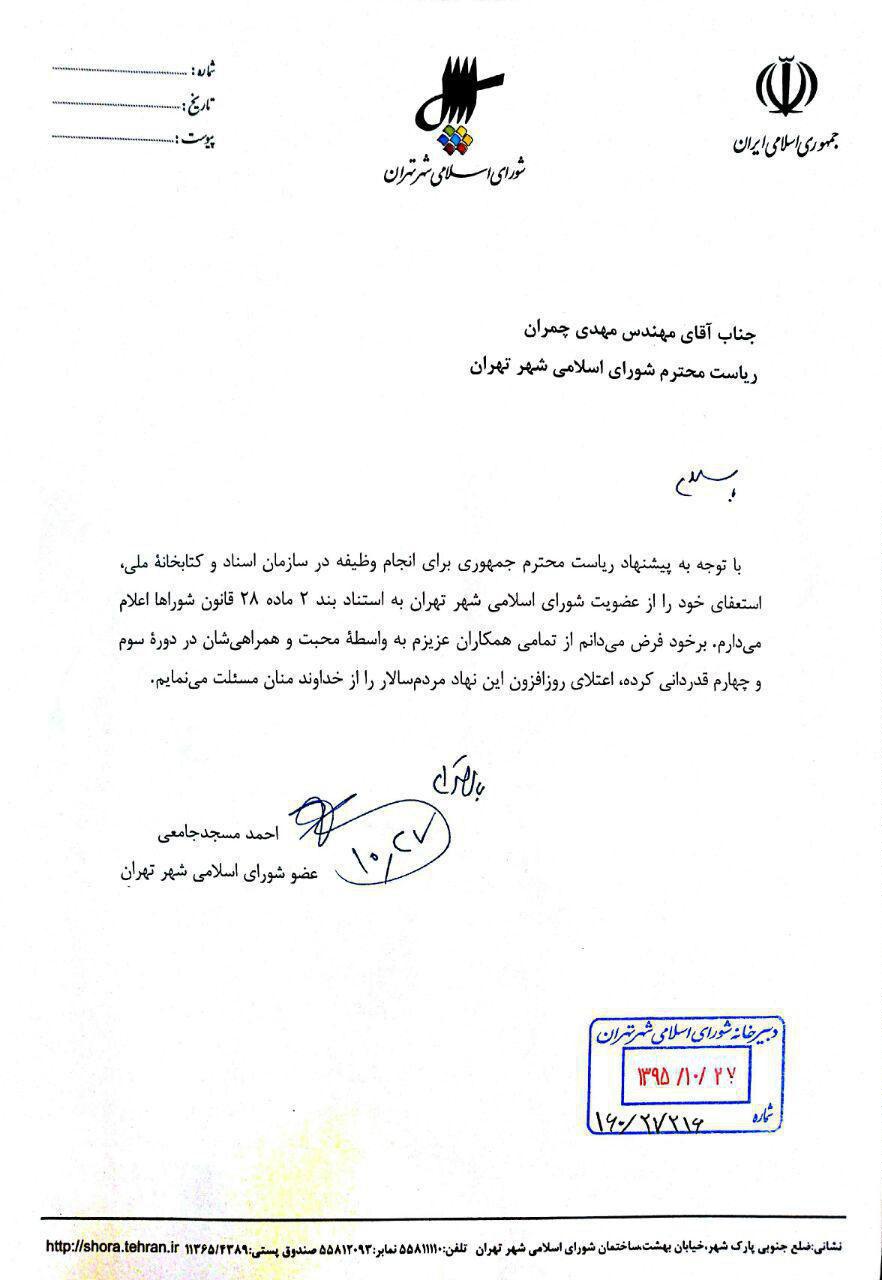 جمهوری اسلامی ایران
شورای اسلامی شهر تهران
شماره:
تاریخ:
پیوست:
جناب آقای مهندس مهدی چمران
ریاست محترم شورای اسلامی شهر تهران
با سلام
با توجه به پیشنهاد ریاست محترم جمهوری برای انجام وظیفه در سازمان اسناد و کتابخانهٔ ملی،
استعفای خود را از عضویت شورای اسلامی شهر تهران به استناد بند ۲ ماده ۲۸ قانون شوراها اعلام
می‌دارم. برخود فرض می‌دانم از تمامی همکاران عزیزم به واسطهٔ محبت و همراهی‌شان در دورهٔ سوم
و چهارم قدردانی کرده، اعتلای روزافزون این نهاد مردم‌سالار را از خداوند منان مسئلت می‌نمایم.
با احترام
۱۰/۲۷
احمد مسجدجامعی
عضو شورای اسلامی شهر تهران
دبیرخانه شورای اسلامی شهر تهران
۱۳۹۵/۱۰/۲۷
شماره ۱۶۰/۲۷۲۱۶
نشانی:ضلع جنوبی پارک شهر،خیابان بهشت،ساختمان شورای اسلامی شهر تهران تلفن:۵۵۸۱۱۱۱۰ نمابر:۵۵۸۱۲۰۹۳ صندوق پستی:۱۱۳۶۵/۴۳۸۹ http://shora.tehran.ir